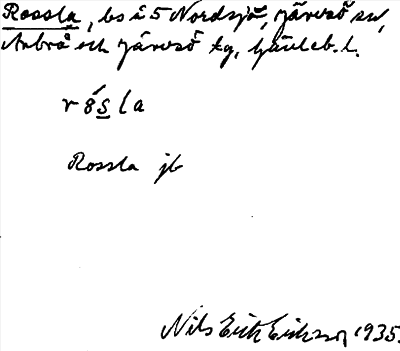 Rossla, bs å 5 Nordsjö, Järvsö sn,
Arbrå och Järvsö tg, Gävleb. l.
Rossla jb
Nils Erik Eriksson 1935.